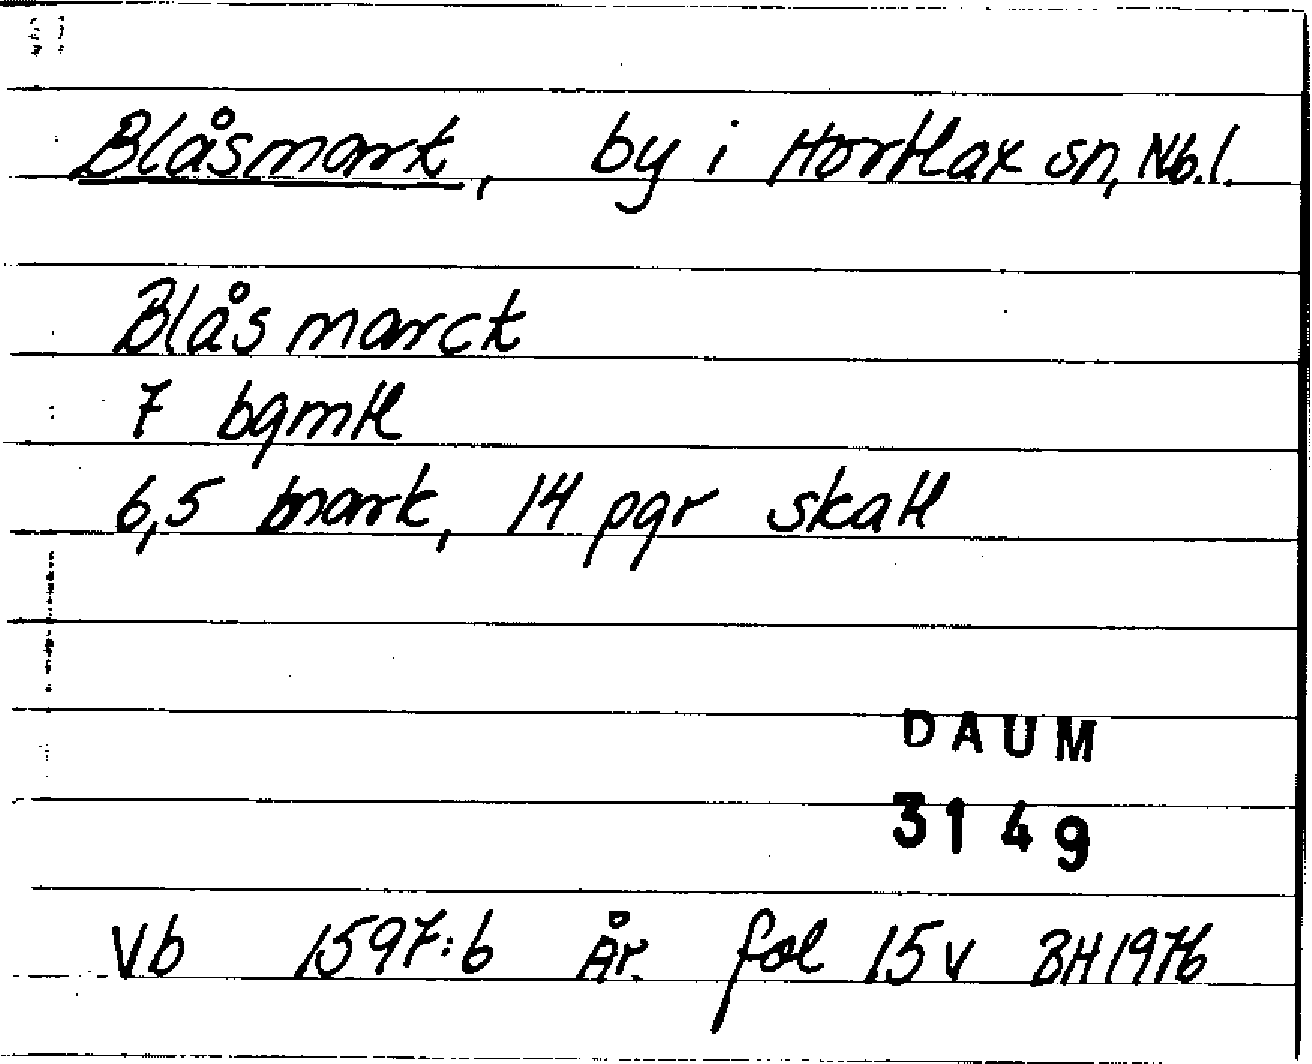 Blåsmark, by i Hortlax sn, Nb.l.
Blås marck
7 bgmtl
6,5 mark, 14 pgr skatt
DAUM
3149
Vb 1597:6 År. fol 15v BH1976